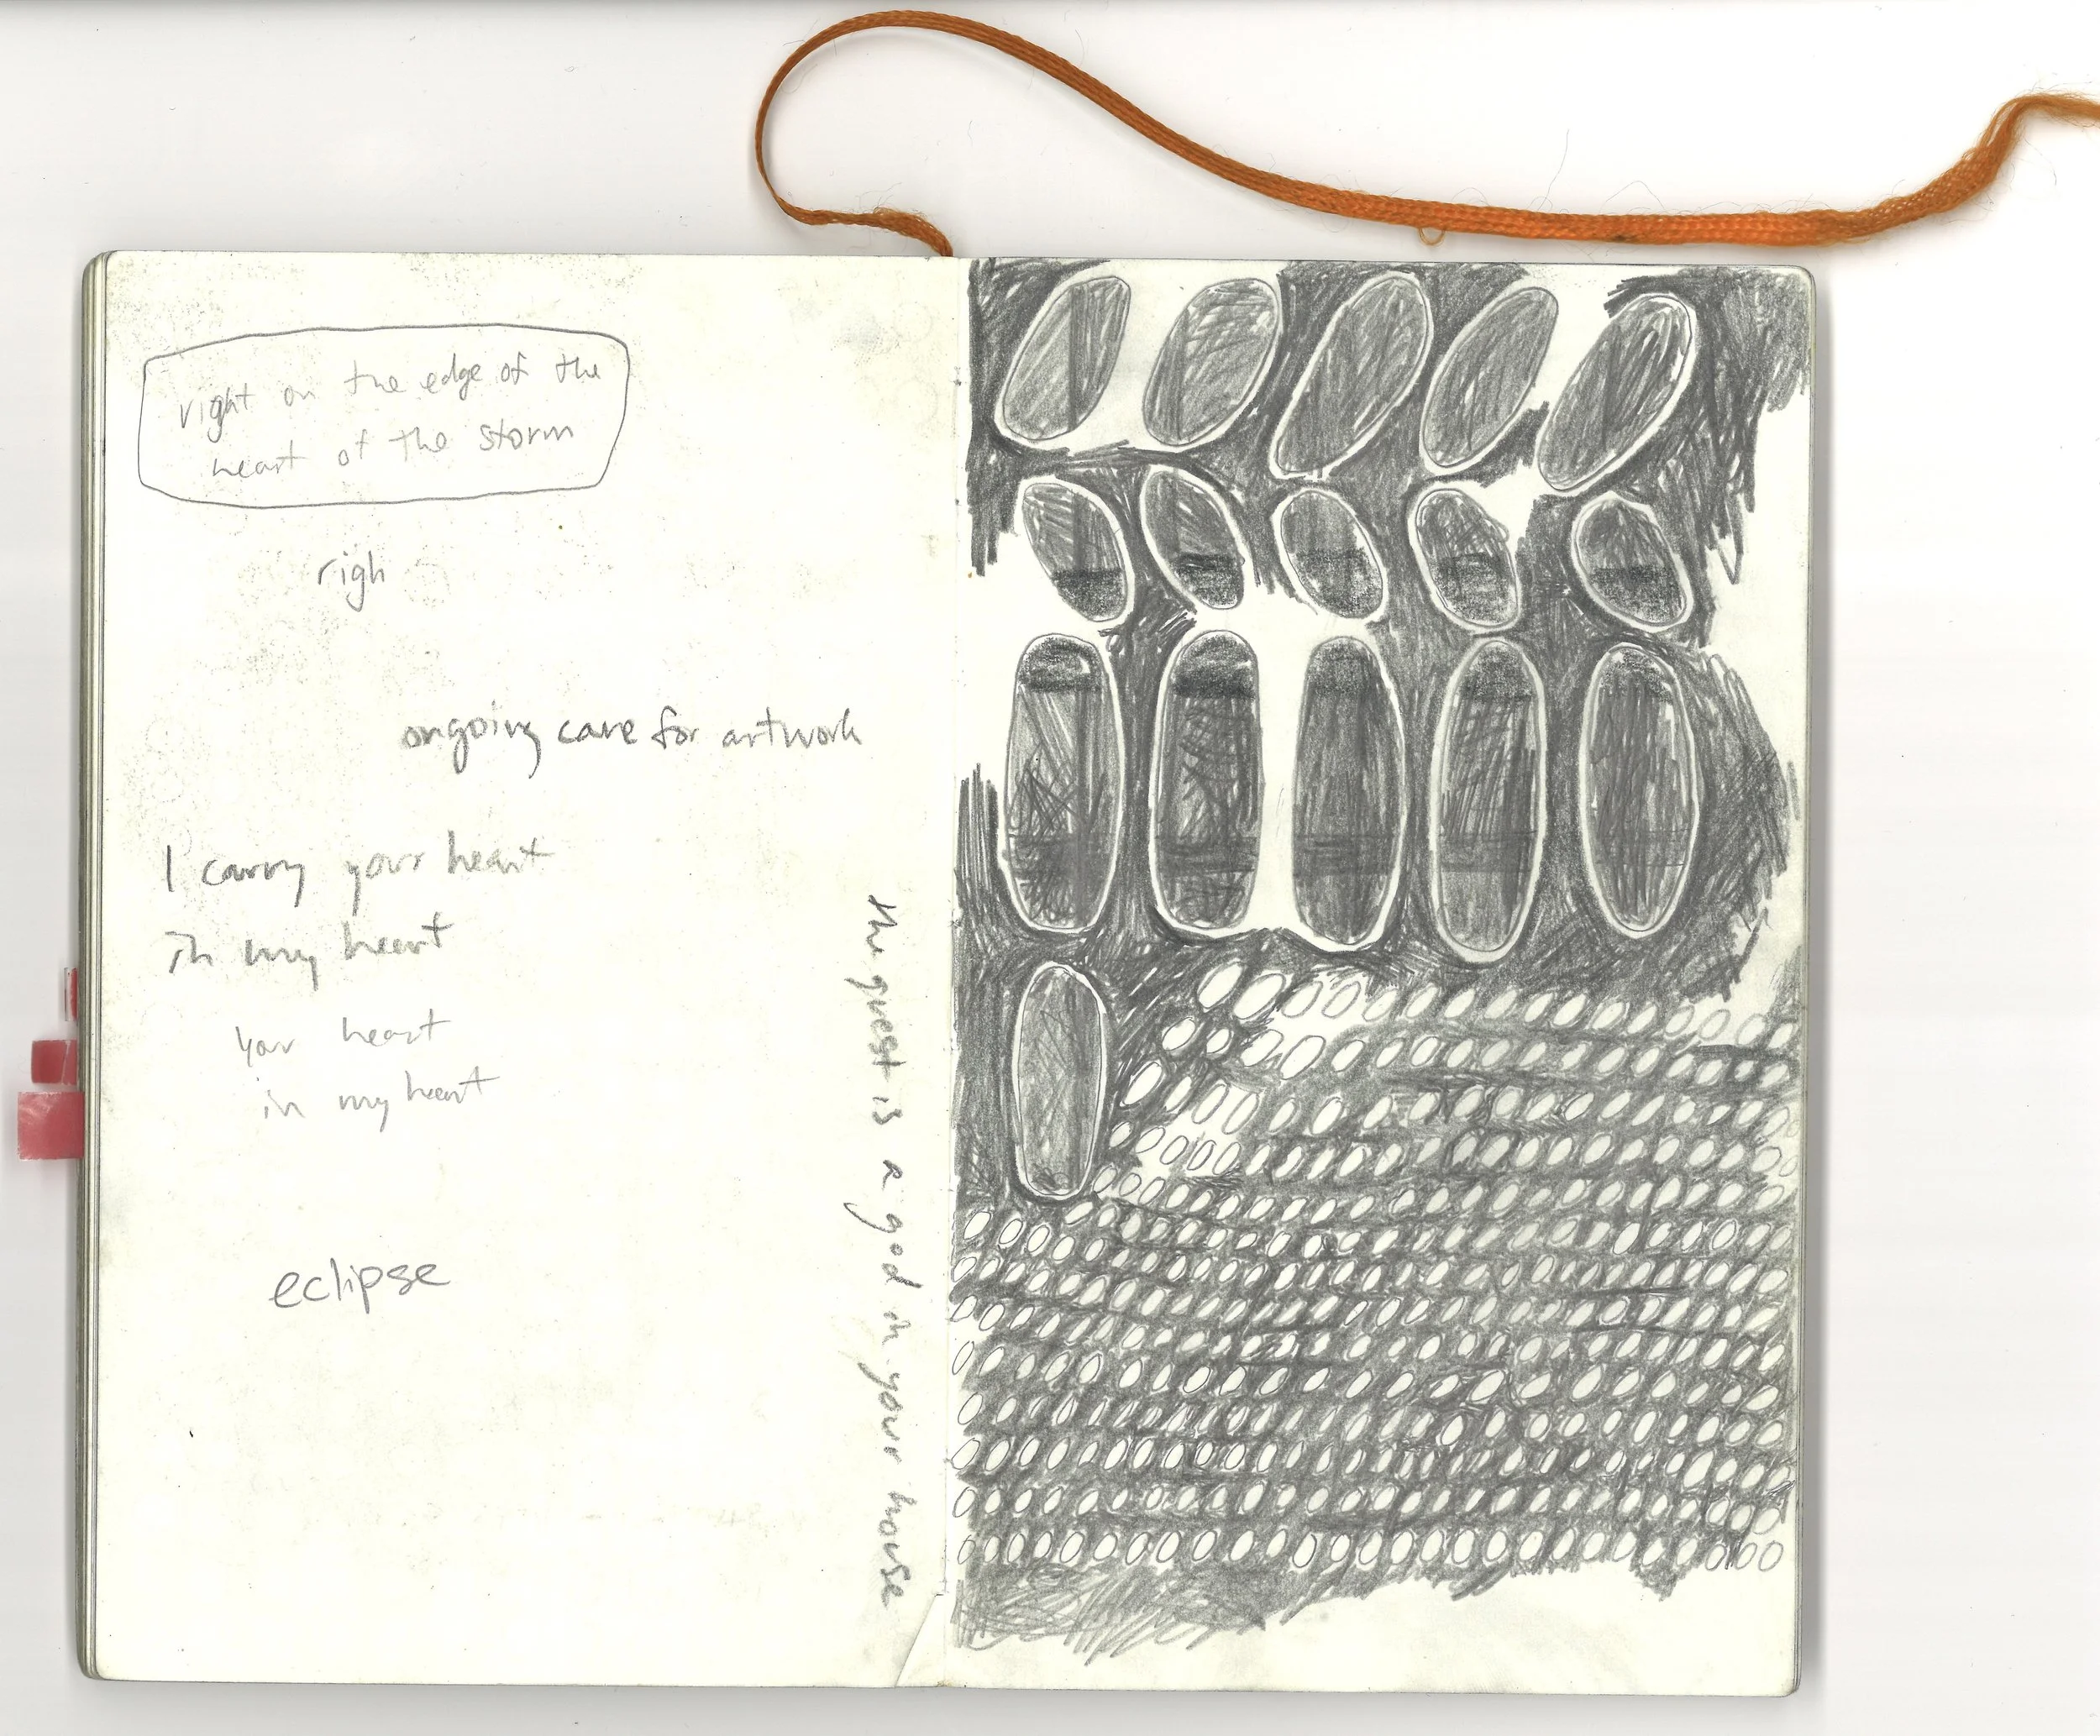 right on the edge of the
heart of the storm
righ
ongoing care for artwork
I carry your heart
in my heart
your heart
in my heart
eclipse
the guest is a god in your house